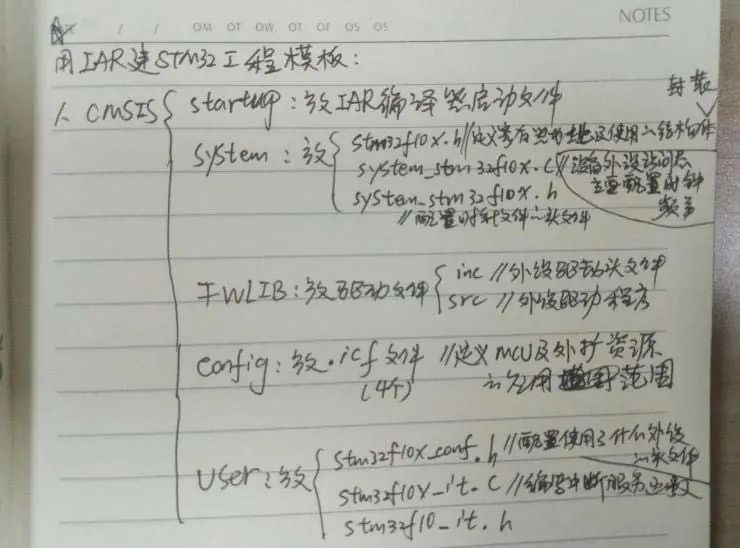 NOTES
/ / OM OT OW OT OF OS OS
用IAR建STM32工程模板:
封装
1. CMSIS
startup:放IAR编译器启动文件
system:放
stm32f10x.h//定义寄存器地址及使用的结构体
system_stm32f10x.c//设备外设访问层
主要配置时钟
频率
system_stm32f10x.h
//配置时钟文件的头文件
FWLIB:放驱动文件
inc //外设驱动头文件
src //外设驱动程序
config:放.icf文件 //定义MCU及外扩资源
(4个)
的应用范围
User:放
stm32f10x_conf.h//配置使用了什么外设
的头文件
stm32f10x_it.c//编写中断服务函数
stm32f10_it.h